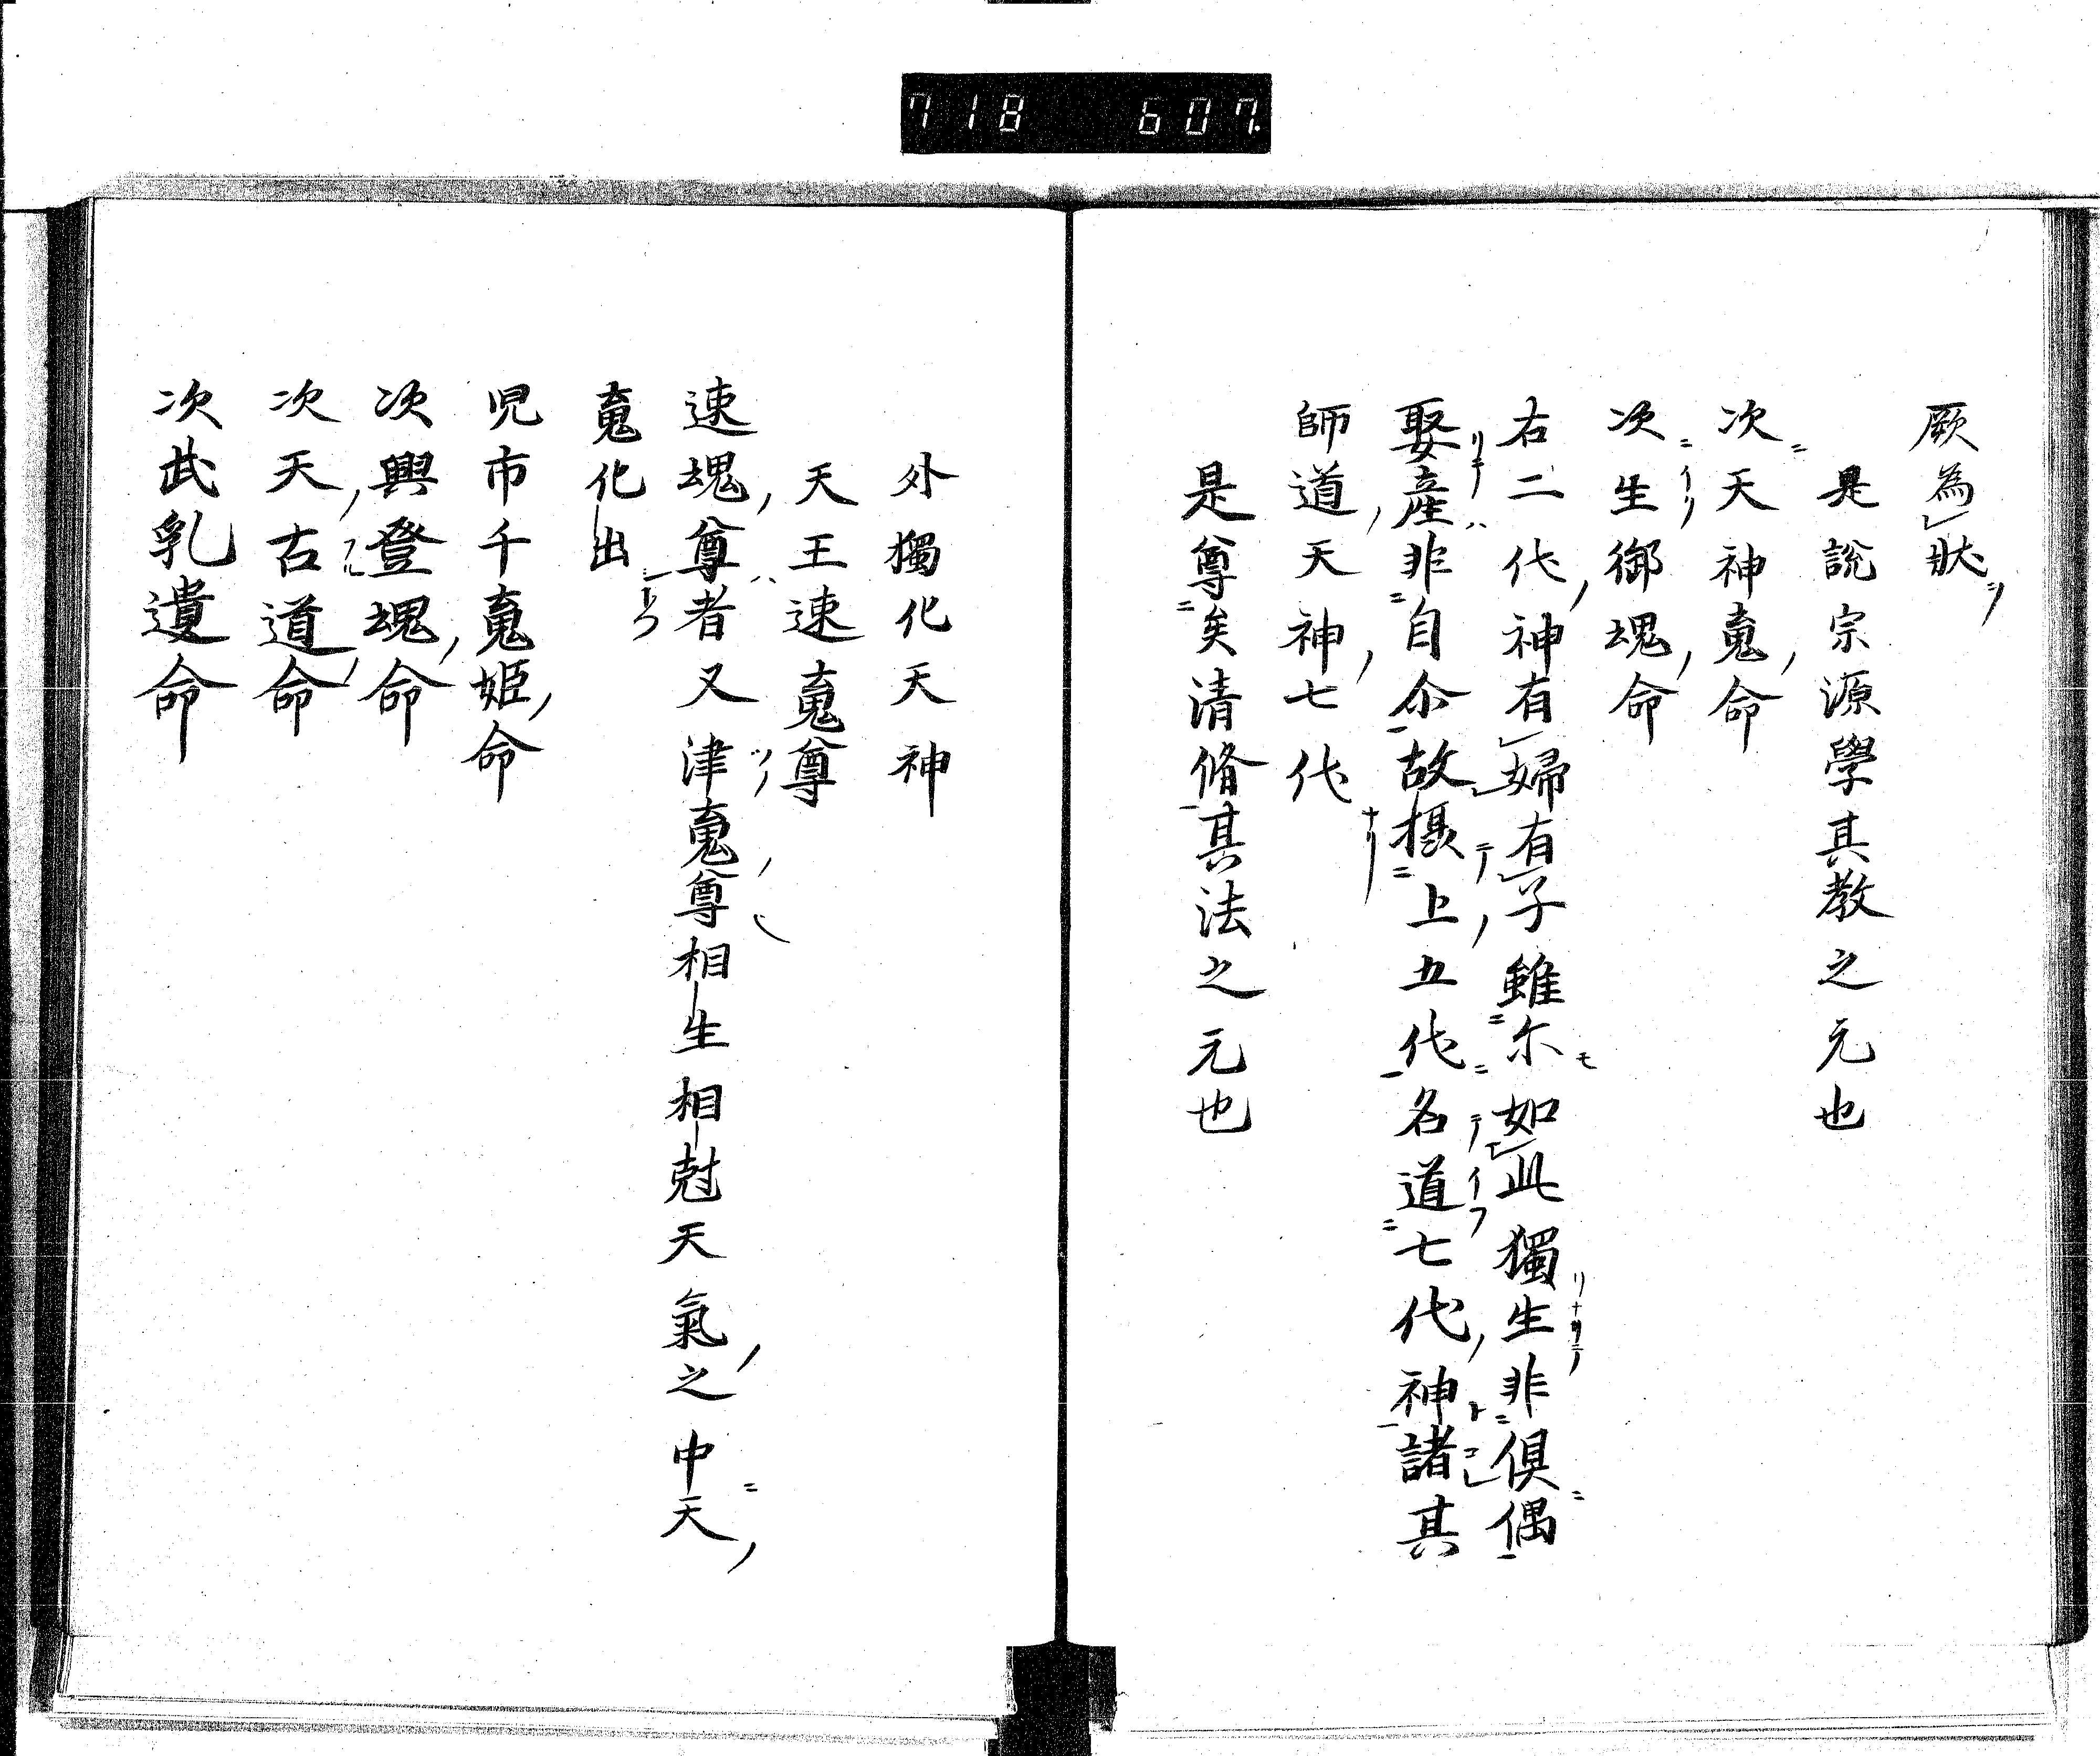 718 607.
厥為狀
是說宗源學其教之元也
次天神䰟命
次生御塊命
右二代神有婦有子雖尓如此獨生非俱偶
娶産非自尒故摂上五代名道七代神諸其
師道天神七代
是尊矣清脩其法之元也
外獨化天神
天王速䰟尊
速塊尊者又津䰟尊相生相尅天氣之中天
䰟化出
児市千䰟姫命
次興登塊命
次天古道命
次武乳遺命